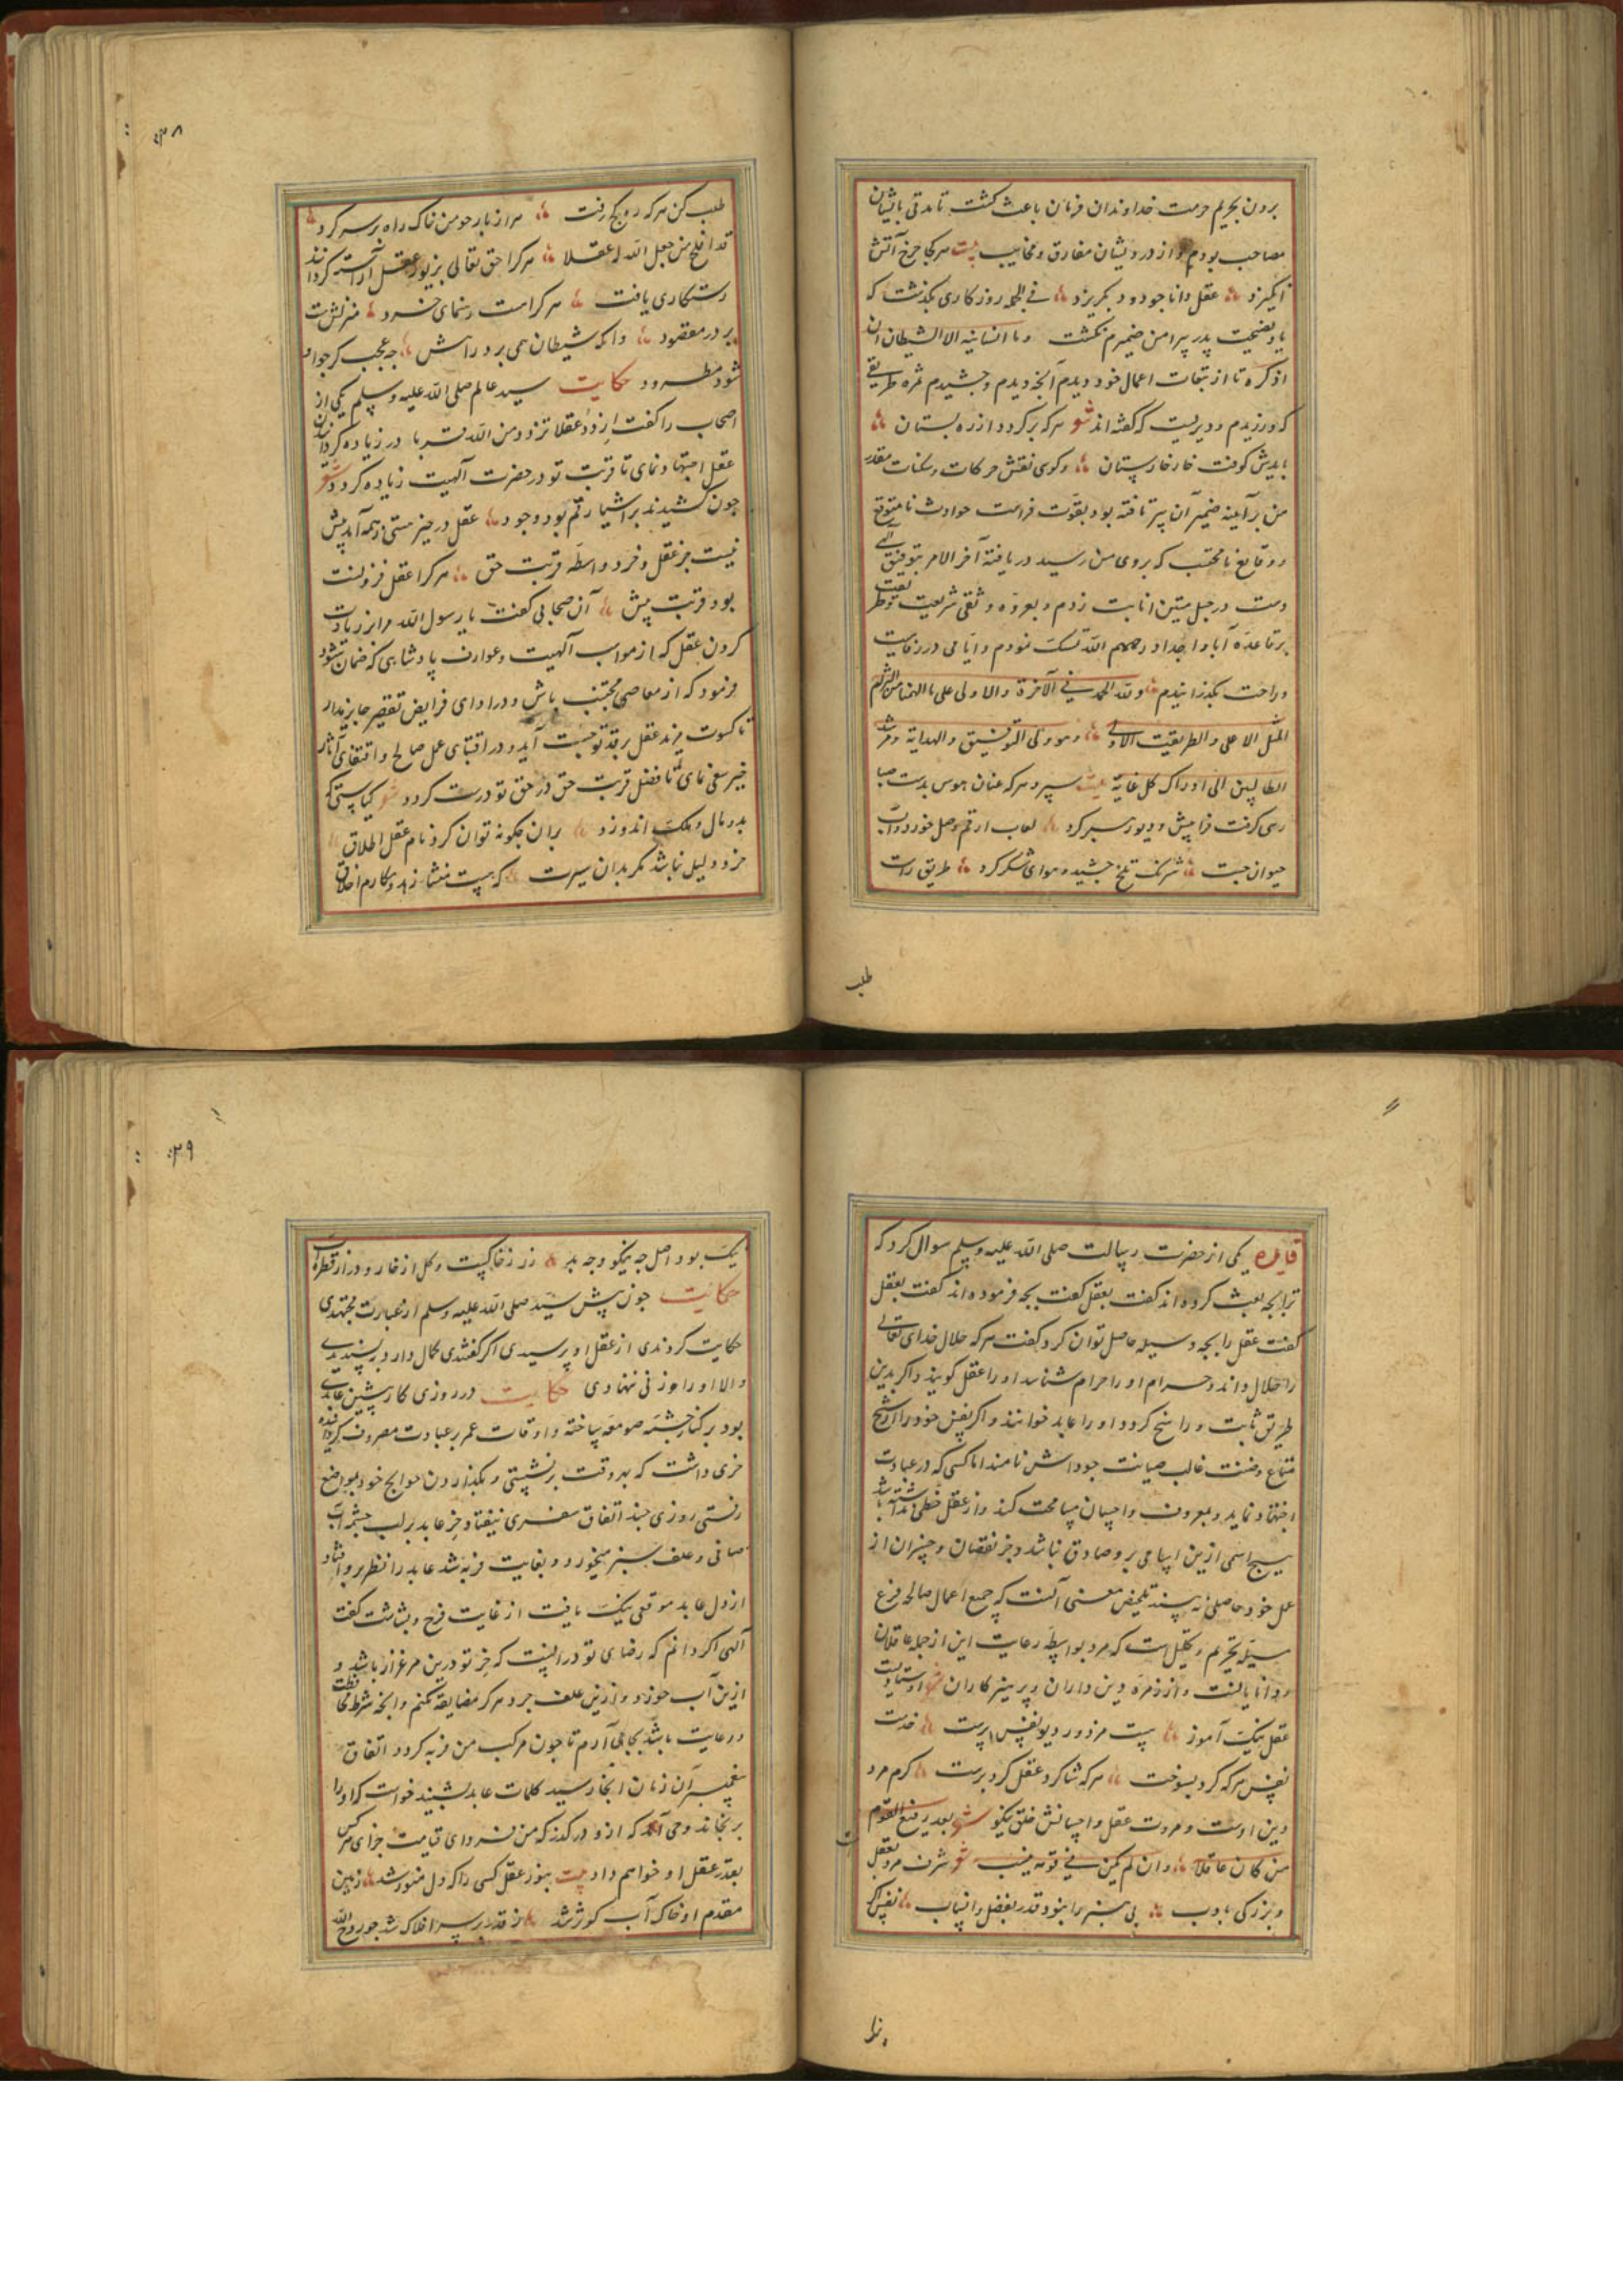 برون بحریم حرمت خداوندان فرمان باعث کشت تا مدتی با ایشان
مصاحب بودم و از درویشان مفارق و مجانب بیت هر کجا چرخ آتش
انکیزد عقل دانا جو دود بکریزد فی الجمله روزکاری بکذشت که
یاد نصیحت پدر پیرامن ضمیرم نکشت وما انسانیه الا الشیطان ان
اذکره تا از تبعات اعمال خود دیدم آنچه دیدم و چشیدم ثمره طریقی
که ورزیدم و دیریست که کفته اند شعر هر که برکردد از ره بستان
بایدش کوفت خار خارستان وکویی نقش حرکات وسکنات مقدر
من بر آینه ضمیر آن پیر تافته بود بقوت فراست حوادث نامتوقع
ووقایع نامحتسب که بروی من رسید دریافته آخر الامر بتوفیق الهی
دست در حبل متین انابت زدم و بعروه وثقی شریعت وطریقت
بر قاعده آبا و اجداد رحمهم الله تمسک نمودم و ایامی در رفاهیت
وراحت بکذرانیدم ولله الحمد فی الآخرة والاولی علی ما الهمنا من
المثل الاعلی والطریقت الاولی وهو ولی التوفیق والهدایة ومرشد
الطالبین الی ادراک کل غایة بیت سپرد هر که عنان هوس بدست صبا
رهی کرفت فرا پیش و دیو رهبر کرد لعاب ارقم وصل خورد وآب
حیوان جست شرنک تلخ چشید و هوای شکر کرد طریق راست
طلب
۳۸
طلب کن هر که رو کج رفت هزار بار چو من خاک راه بر سر کرد
قد افلح من جعل الله له عقلا هر کرا حق تعالی بزیور عقل آراسته کرداند
رستکاری یافت هر کراست رهنمای خرد منزلش هست
بر در مقصود وانکه شیطان همی برد راهش چه عجب کر جو او
شود مطرود حکایت سید عالم صلی الله علیه وسلم یکی از
اصحاب را کفت ازدد عقلا تزدد من الله قربا در زیاده کردانیدن
عقل اجتهاد نمای تا قربت تو در حضرت آلهیت زیاده کردد شعر
چون کشیدند بر اشیا رقم بود و جود عقل در حیز هستی ز همه آمد پیش
نیست جز عقل و خرد واسطه قربت حق هر کرا عقل فزونست
بود قربت بیش آن صحابی کفت یا رسول الله مرا از زیادت
کردن عقل که از مواهب آلهیت وعوارف پادشاهی که ضمان نشود
فرمود که از معاصی مجتنب باش و در ادای فرایض تقصیر جایز مدار
تا کسوت مزید عقل بر قد تو چست آید و در اقتنای عمل صالح و اقتفای آثار
خیر سعی نمای تا فضل قربت حق در حق تو درست کردد شعر کیاستی که
بدو مال و ملک اندوزد بران چکونه توان کرد نام عقل اطلاق
خرد دلیل نباشد مکر بدان سیرت که هست منشا زهد و مکارم اخلاق
قایده یکی از حضرت رسالت صلی الله علیه وسلم سوال کرد که
ترا بچه بعث کرده اند کفت بعقل کفت بچه فرموده اند کفت بعقل
کفت عقل را بچه وسیله حاصل توان کرد کفت هر که حلال خدای تعالی
را حلال داند و حرام او را حرام شناسد او را عقل کویند و اکر بدین
طریق ثابت و راسخ کردد او را عابد خوانند و اکر بنفس خود را از شح
متاع وضنت غالب صیانت جوادش نامند اما کسی که در عبادت
اجتهاد نماید و بمعروف و احسان مسامحت کند و از عقل حظی نداشته باشد
هیچ اسمی ازین اسامی برو صادق نباشد و جز نقصان و خسران از
عمل خود حاصلی نه بیند تلخیص معنی آنست که جمیع اعمال صالحه فرع
مسئله تحریم و تحلیل است که مرد بواسطه رعایت این از جمله عاقلان
و دانایانست و از زمره دین داران و پرهیزکاران شعر اوستادیست
عقل نیک آموز هست مزدور دیو نفس پرست خدمت
نفس هر که کرد بسوخت هر که شاکرد عقل کرد برست کرم مرد
دین اوست و مروت عقل و احسانش خلق نیکو شعر یعد رفیع القوم
من کان عاقلا وان لم یکن فی قومه بحسیب شعر شرف مرد بعقل
و بزرکی بادب بی هنر را نبود قدر بفضل و انساب نفس کر
۳۹
نیک بود اصل چه نیکو و چه بد زر ز خاکیست و کل از خار و در از قطره آب
حکایت چون پیش سید صلی الله علیه وسلم از عبارت مجتهدی
حکایت کردندی از عقل او پرسیدی اکر کفتندی کمال دارد بپسندیدی
والا او را وزنی ننهادی حکایت در روزکار پیشین عابدی
بود بر کنار چشمه صومعه ساخته و اوقات عمر بر عبادت مصروف کردانیده
خری داشت که بهر وقت برنشستی و بکذاردن حوایج خود بمواضع
رفتی روزی چند اتفاق سفری نیفتاد و خر عابد بر لب چشمه آب
صافی و علف سبز میخورد و بغایت فربه شد عابد را نظر برو افتاد
از دل عابد موقعی نیک یافت از غایت فرح و بشاشت کفت
آلهی اکر دانم که رضای تو در انست که خر تو درین مرغزار باشد و
ازین آب خورد و ازین علف چرد هرکز مضایقه نکنم و آنچه شرط محافظت
و رعایت باشد بجای آرم تا چون مرکب من فربه کردد اتفاق
پیغمبر آن زمان انجا رسید کلمات عابد بشنید خواست که او را
برنجاند وحی آمد که ازو درکذر که من فردای قیامت جزای هر کس
بقدر عقل او خواهم داد بیت بنور عقل کسی را که دل منور شد زمین
مقدم او خاک آب کوثر شد ز قدر بر سر افلاک شد چو روح الله